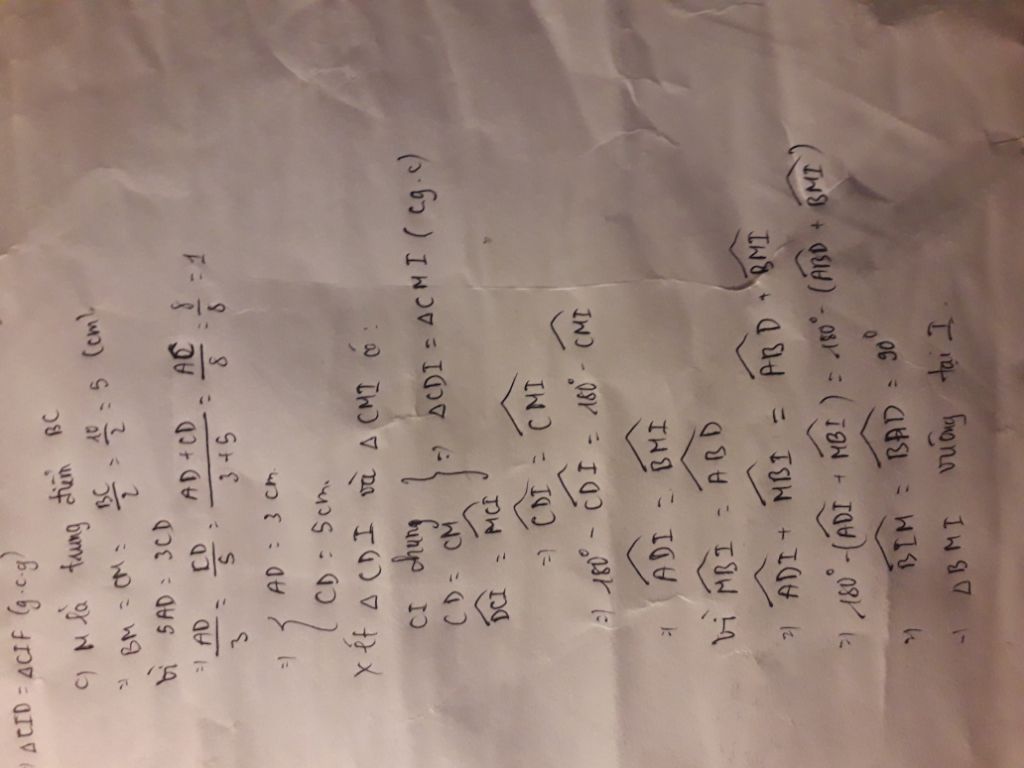 ) ΔCID = ΔCIF (g.c.g)
c) M là trung điểm BC
⇒ BM = CM = BC/2 = 10/2 = 5 (cm).
Vì 5AD = 3CD
⇒ AD/3 = CD/5 = (AD+CD)/(3+5) = AC/8 = 8/8 = 1
⇒ { AD = 3 cm
CD = 5 cm.
Xét ΔCDI và ΔCMI có:
CI chung
CD = CM } ⇒ ΔCDI = ΔCMI (cg.c)
\widehat{DCI} = \widehat{MCI}
⇒ \widehat{CDI} = \widehat{CMI}
⇒ 180° - \widehat{CDI} = 180° - \widehat{CMI}
⇒ \widehat{ADI} = \widehat{BMI}
Vì \widehat{MBI} = \widehat{ABD}
⇒ \widehat{ADI} + \widehat{MBI} = \widehat{ABD} + \widehat{BMI}
⇒ 180° - (\widehat{ADI} + \widehat{MBI}) = 180° - (\widehat{ABD} + \widehat{BMI})
⇒ \widehat{BIM} = \widehat{BAD} = 90°
⇒ ΔBMI vuông tại I.